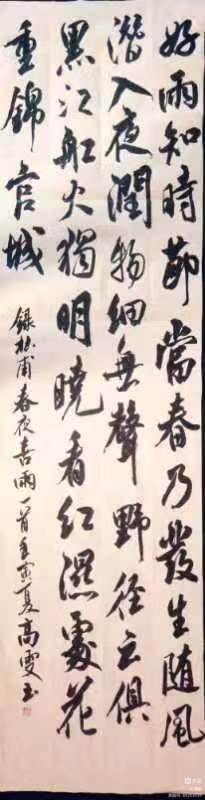 好雨知時節當春乃發生随風
潛入夜潤物細無聲野径云俱
黑江船火獨明曉看紅濕處花
重錦官城
録杜甫春夜喜雨一首壬寅夏高雯